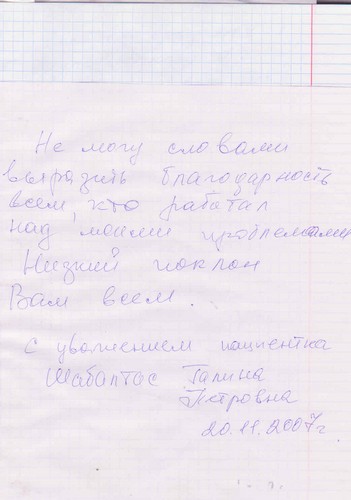 Не могу словами
выразить благодарность
всем, кто работал
над моими проблемами
Низкий поклон
Вам всем.
С уважением пациентка
Галина
Петровна
20.11.2007г